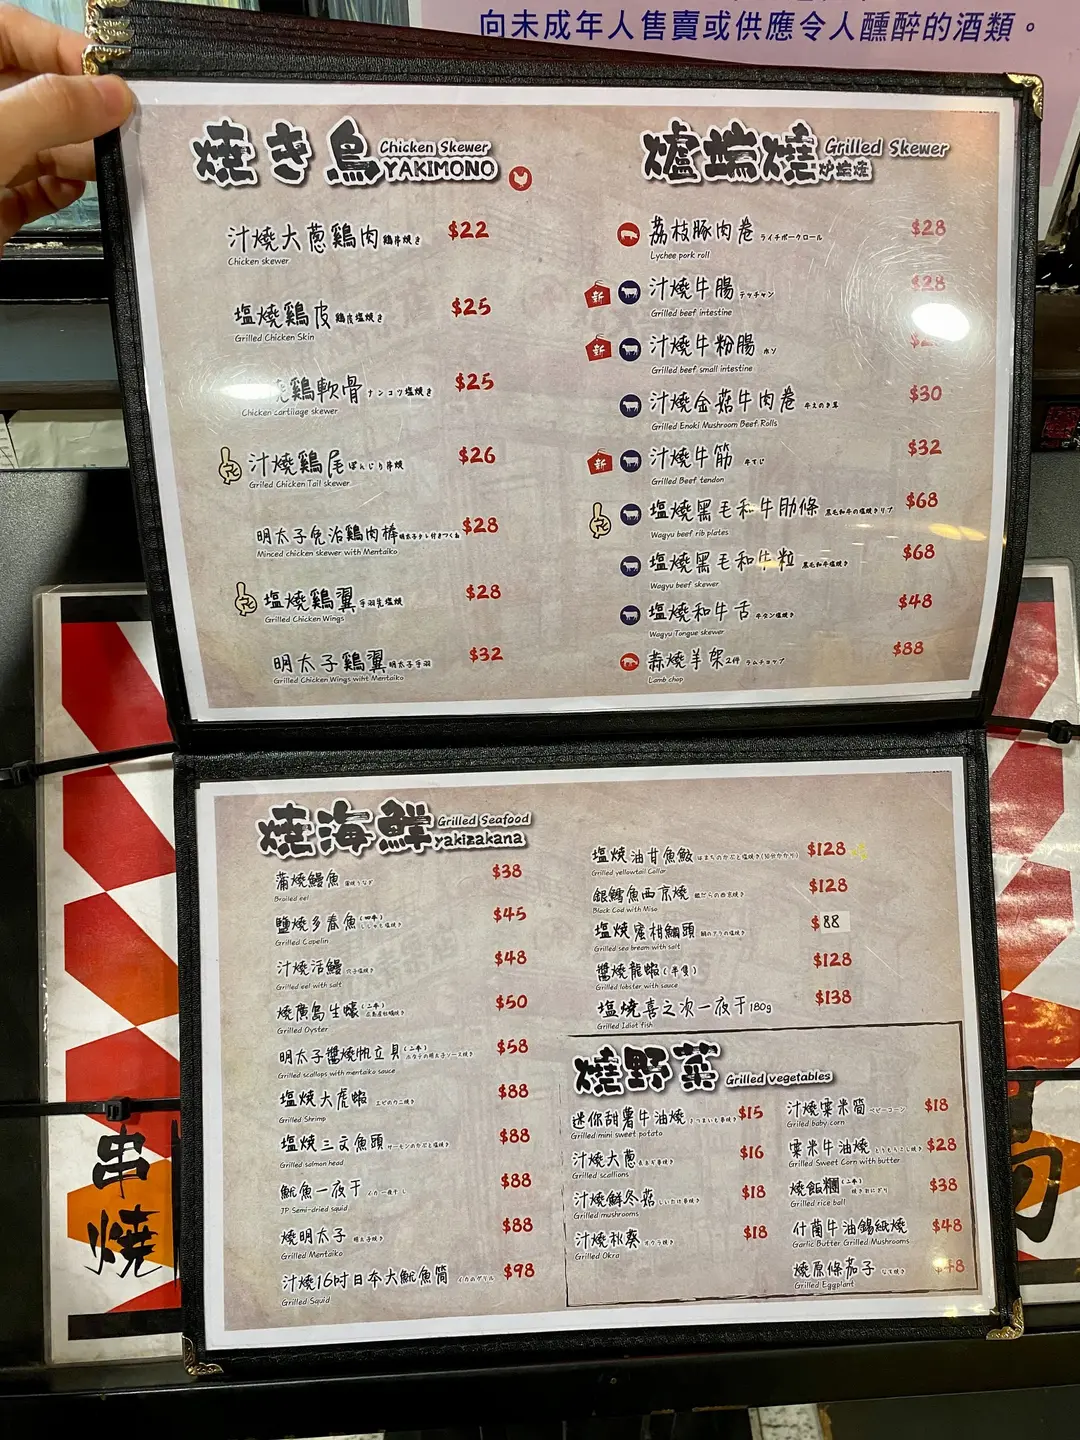 向未成年人售賣或供應令人醺醉的酒類。
焼き鳥 Chicken Skewer YAKIMONO
汁燒大蔥鷄肉 鶏串焼き $22
Chicken skewer
塩燒鷄皮 鶏皮塩焼き $25
Grilled Chicken Skin
燒鷄軟骨 ナンコツ塩焼き $25
Chicken cartilage skewer
汁燒鷄尾 ぼんじり串焼 $26
Grilled Chicken Tail skewer
明太子免治鷄肉棒 $28
Minced chicken skewer with Mentaiko
塩燒鷄翼 手羽先塩焼 $28
Grilled Chicken Wings
明太子鷄翼 明太子手羽 $32
Grilled Chicken Wings wiht Mentaiko
爐端燒 Grilled Skewer 炉端焼
荔枝豚肉卷 ライチポークロール $28
Lychee pork roll
新 汁燒牛腸 テッチャン $28
Grilled beef intestine
新 汁燒牛粉腸 ホソ
Grilled beef small intestine
汁燒金菇牛肉卷 $30
Grilled Enoki Mushroom Beef Rolls
新 汁燒牛筋 牛すじ $32
Grilled Beef tendon
塩燒黑毛和牛肋條 黒毛和牛の塩焼きリブ $68
Wagyu beef rib plates
塩燒黑毛和牛粒 黒毛和牛塩焼き $68
Wagyu beef skewer
塩燒和牛舌 牛タン塩焼き $48
Wagyu Tongue skewer
燒羊架2件 ラムチョップ $88
Lamb chop
燒海鮮 Grilled Seafood yakizakana
蒲燒鰻魚 蒲焼うなぎ $38
Broiled eel
鹽燒多春魚(四串) ししゃも塩焼き $45
Grilled Capelin
汁燒活鰻 穴子塩焼き $48
Grilled eel with salt
燒廣島生蠔(二串) 広島産牡蠣焼き $50
Grilled Oyster
明太子醬燒帆立貝(二串) ホタテの明太子ソース焼き $58
Grilled scallops with mentaiko sauce
塩燒大虎蝦 エビのウニ焼き $88
Grilled Shrimp
塩燒三文魚頭 サーモンのかぶと塩焼き $88
Grilled salmon head
魷魚一夜干 イカ一夜干し $88
JP Semi-dried squid
燒明太子 明太子焼き $88
Grilled Mentaiko
汁燒16吋日本大魷魚筒 イカのグリル $98
Grilled Squid
塩燒油甘魚鮫 はまちのかぶと塩焼き(30分かかり) $128
Grilled yellowtail Collar
銀鱈魚西京燒 銀だらの西京焼き $128
Black Cod with Miso
塩燒蜜柑鯛頭 鯛のアラの塩焼き $88
Grilled sea bream with salt
醬燒龍蝦(半隻) $128
Grilled lobster with sauce
塩燒喜之次一夜干180g $138
Grilled Idiot fish
燒野菜 Grilled vegetables
迷你甜薯牛油燒 さつまいも串焼き $15
Grilled mini sweet potato
汁燒大蔥 長ねぎ串焼き $16
Grilled scallions
汁燒鮮冬菇 しいたけ串焼き $18
Grilled mushrooms
汁燒秋葵 オクラ焼き $18
Grilled Okra
汁燒粟米筒 ベビーコーン $18
Grilled baby corn
粟米牛油燒 とうもろこし焼き $28
Grilled Sweet Corn with butter
燒飯糰(二串) 焼きおにぎり $38
Grilled rice ball
什菌牛油錫紙燒 $48
Garlic Butter Grilled Mushrooms
燒原條茄子 なす焼き
Grilled Eggplant
串
燒